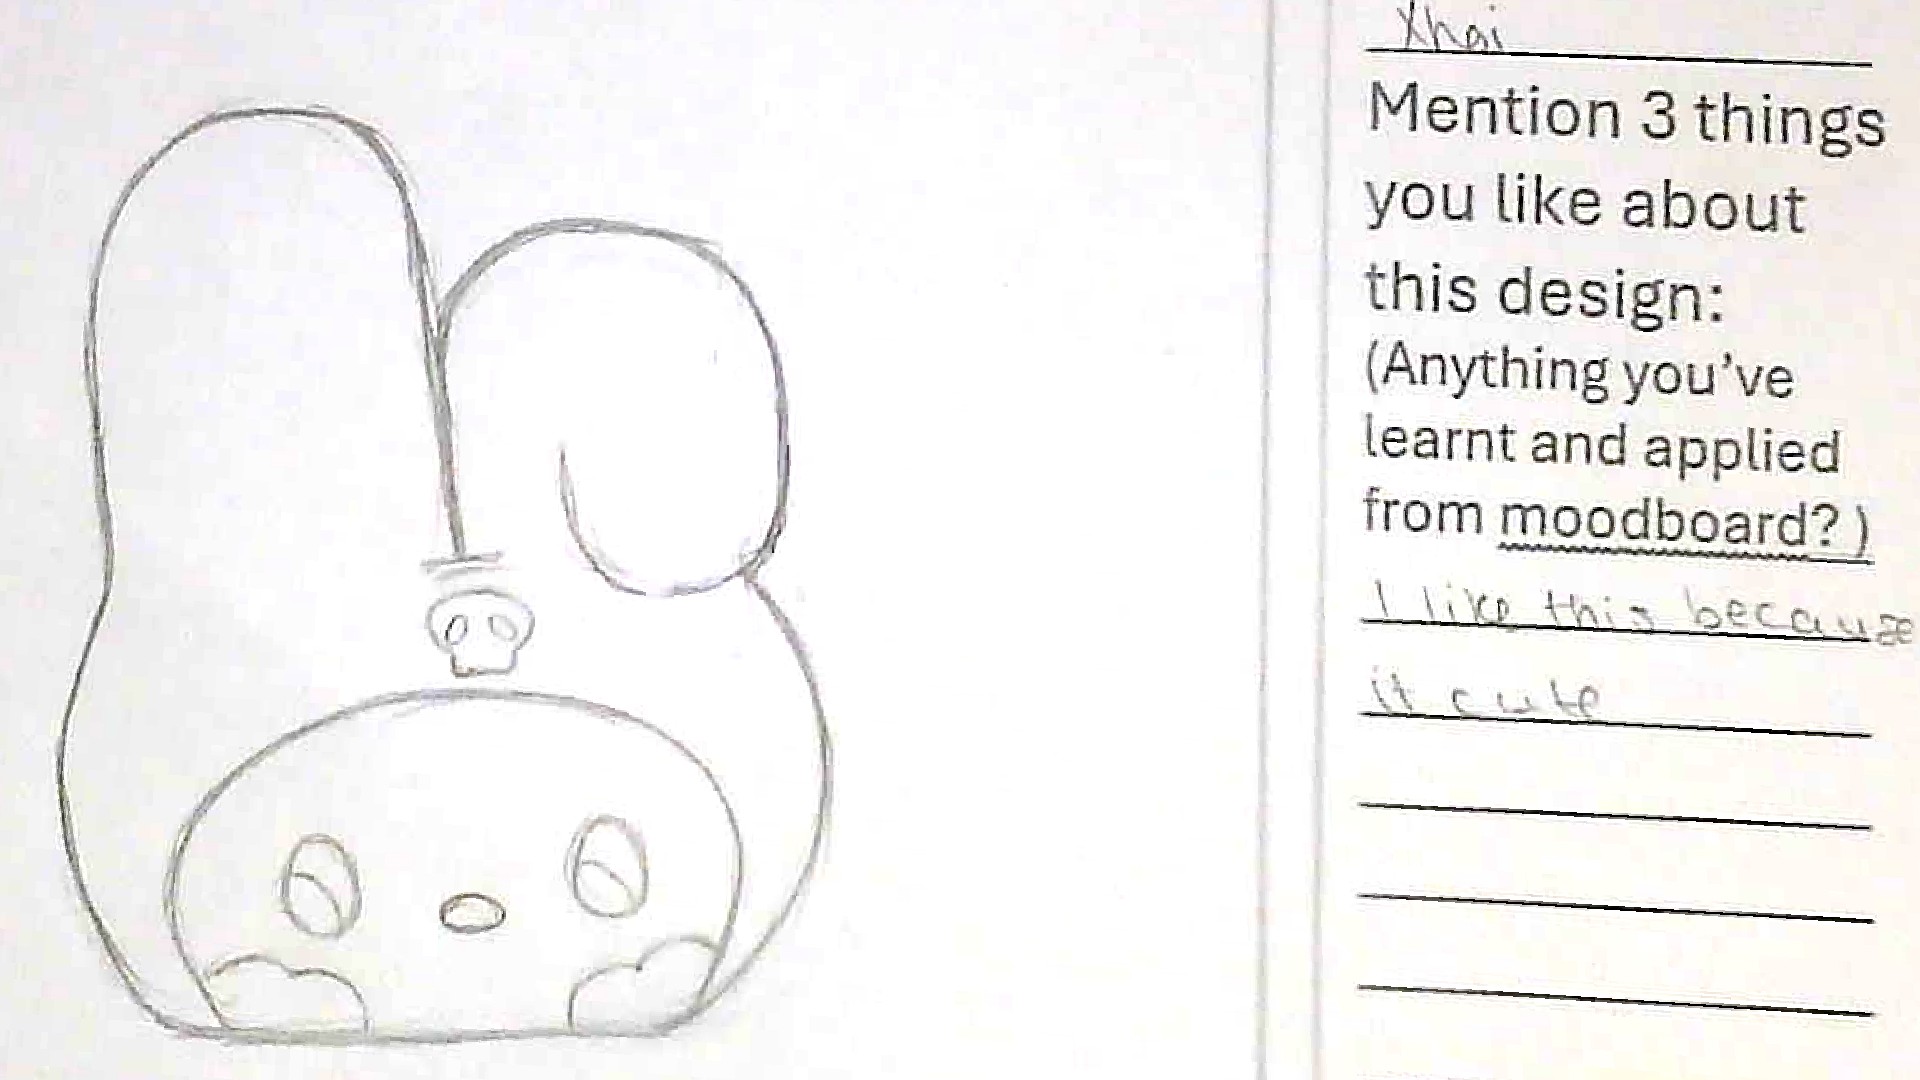 Khai
Mention 3 things
you like about
this design:
(Anything you've
learnt and applied
from moodboard? )
I like this because
it cute